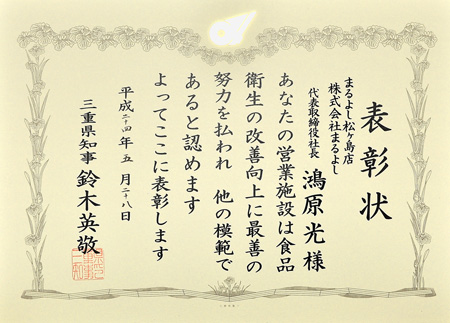 表彰状
まるよし松ヶ島店
株式会社まるよし
代表取締役社長
鴻原光様
あなたの営業施設は食品
衛生の改善向上に最善の
努力を払われ 他の模範で
あると認めます
よってここに表彰します
平成二十四年五月二十八日
三重県知事 鈴木英敬